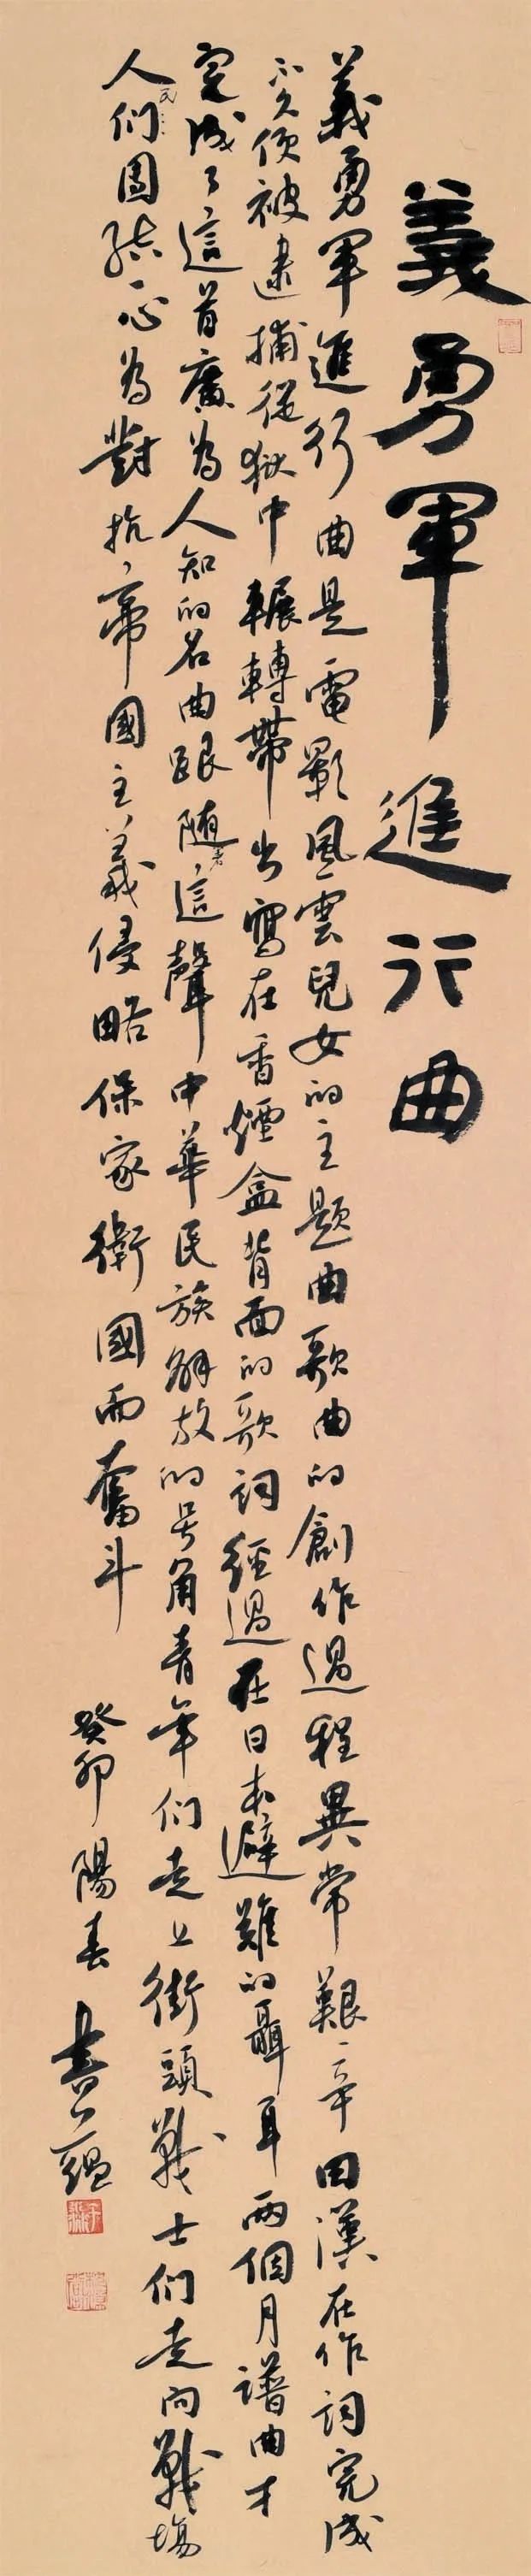 義勇軍進行曲
義勇軍進行曲是電影風雲兒女的主題曲歌曲的創作過程異常艱辛田漢在作詞完成
不久便被逮捕從獄中輾轉帶出寫在香煙盒背面的歌詞經過在日本避難的聶耳兩個月譜曲才
完成了這首廣為人知的名曲跟随着這聲中華民族解放的号角青年们走上街頭戰士们走向戰場
人民们團結一心為對抗帝國主義侵略保家衛國而奮斗
癸卯陽春 書蘊